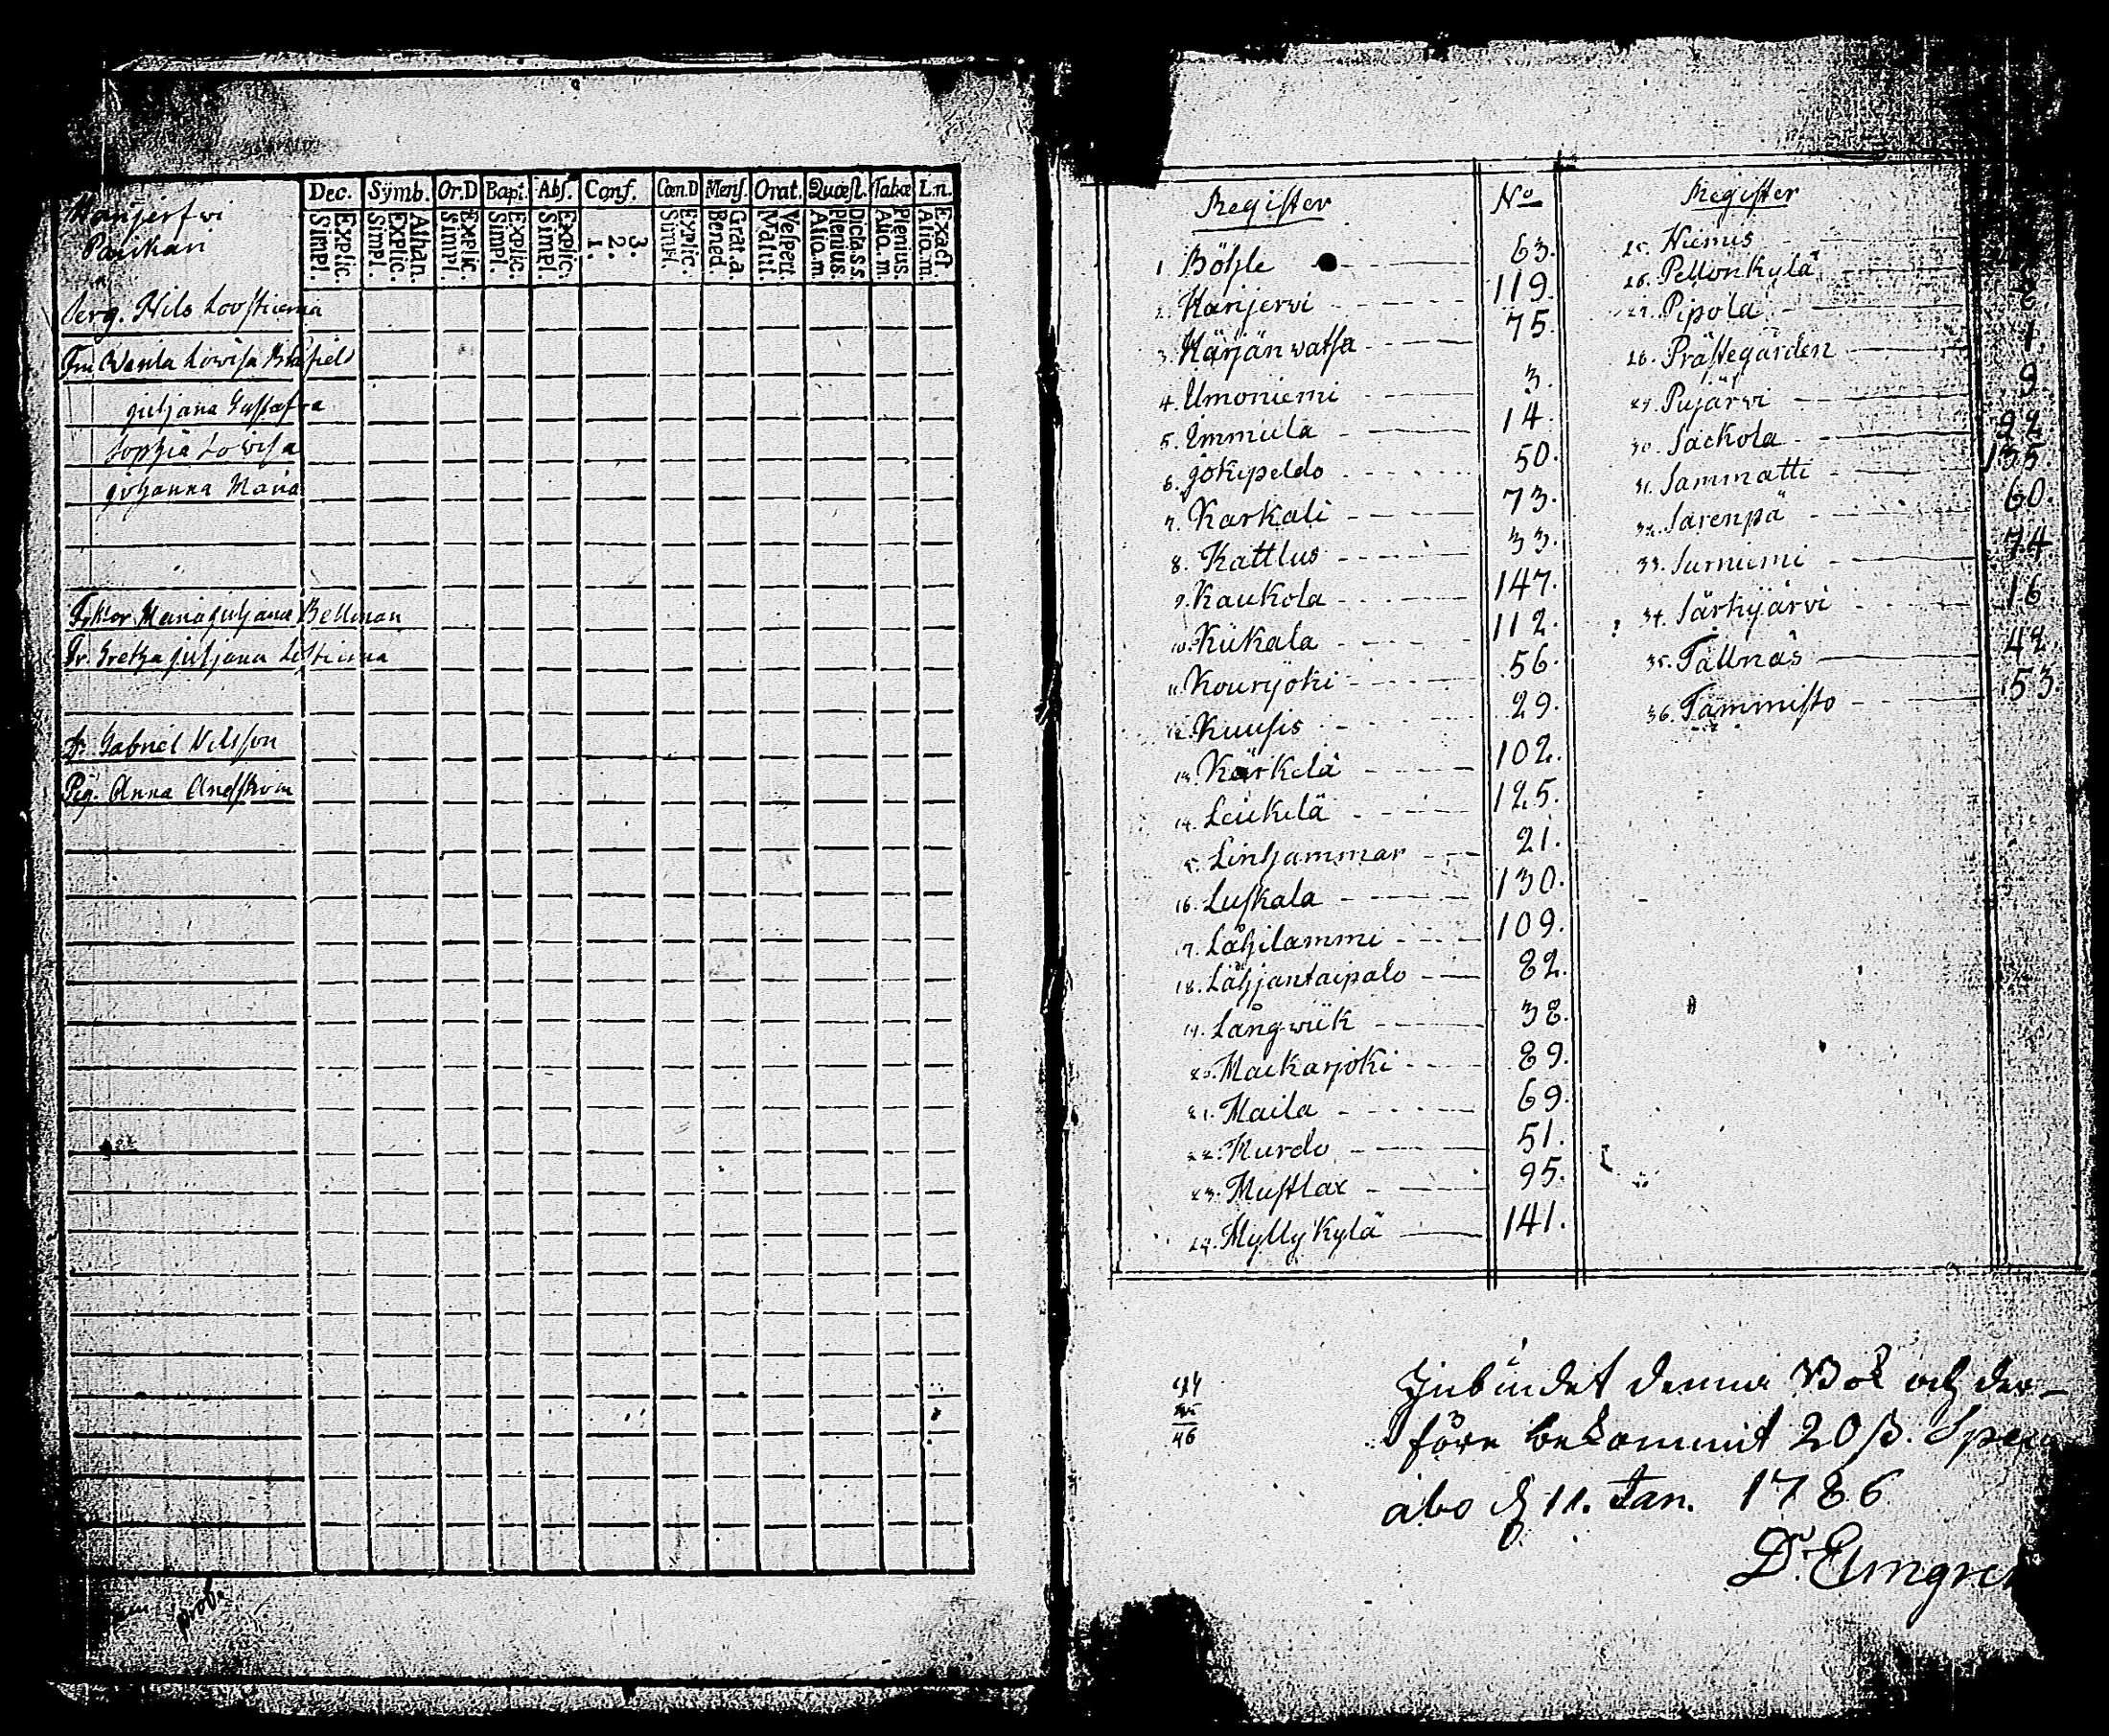 Dec. Symb. Or.D Bapt. Abs. Conf. Cœn.D Mens. Orat. Quæst. Tabæ L.n.
Explic. Simpl. Athan. Explic. Simpl. Explic. Simpl. Explic. Simpl. Explic. Simpl. 3. 2. 1. Explic. Simpl. Grat.a. Bened. Vespert. Matut. Dicta.s.s. Plenius. Aliq.m. Plenius. Aliq.m. Exact Aliq.m.
Hanjerfwi
Serg. Nils
Lowisa
Juljana Gustafva
Sophia Lowisa
Johanna Maria
Maria Juljana Bellman
Fr. Greta Juljana
Dr. Gabriel Nilsson
Pig. Anna
prob
Register No Register
1 Böhle 63.
2. Hanjervi 119.
3. Härjänvatsa 75
4. Ilmoniemi 3.
5. Immula 14.
6. Jokipeldo 50.
7. Karkali 73.
8. Kattlus 33.
9. Kaukola 147.
10. Kiikala 112.
11. Kouryoki 56.
12. Kuusis 29.
13. Kärkelä 102.
14. Leikilä 125.
15. Linhammar 21.
16. Luskala 130.
17. Lähilammi 109.
18. Låhjantaipalo 82.
19. Långwiik 38.
20. Maikarjoki 89.
21. Maila 69.
22. Murdo 51.
23. Mustlax 95.
24. Myllykylä 141.
25. Niemis
26. Pellonkylä
27. Pipola 8.
28. Prästegården 1.
29. Pujärvi 9.
30. Sackola 92
31. Sammatti 135.
32. Sarenpä 60.
33. Surniemi 74.
34. Särkijärvi 16.
35. Tallnäs 42.
36. Tammisto 53.
46
Inbundet denna Bok och der-
före bekommit 20 ß.
åbo d 11. Jan. 1786